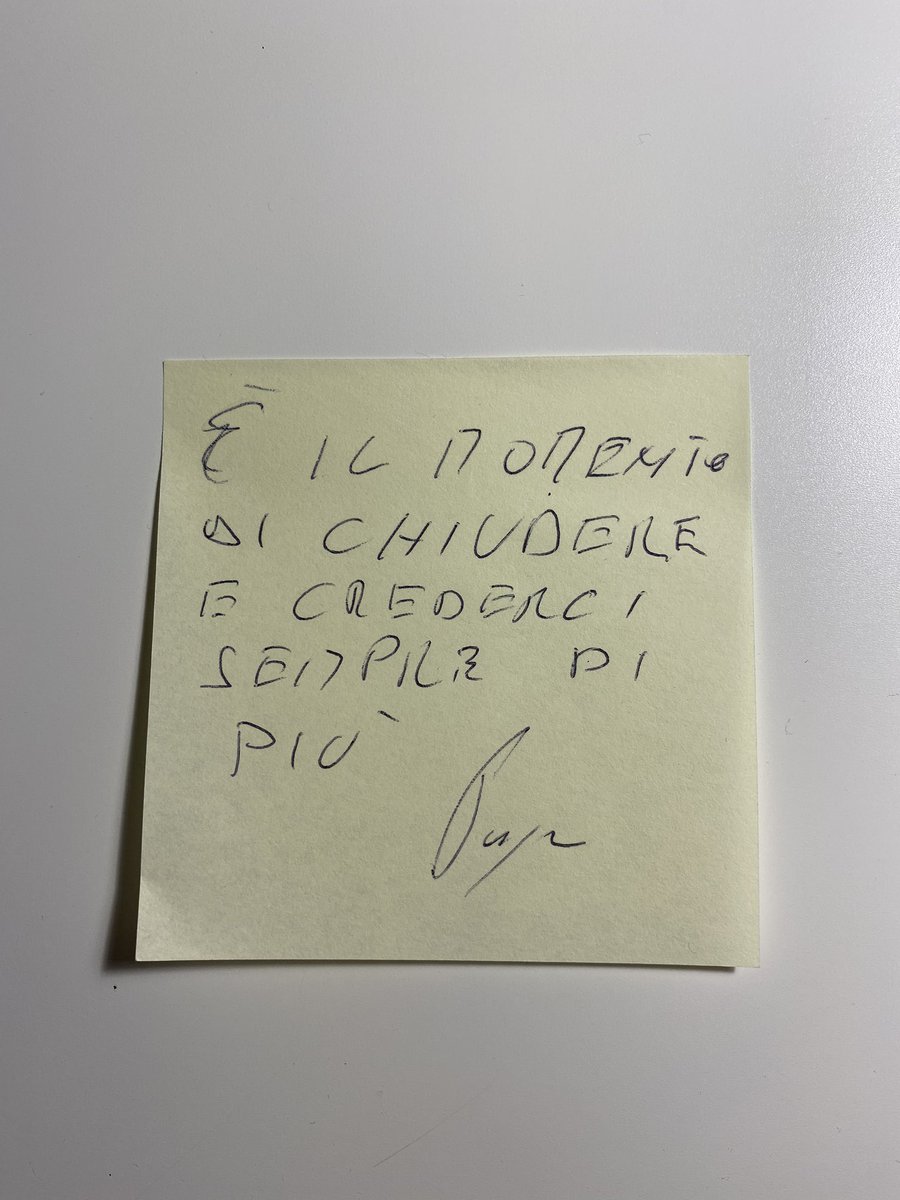 È IL MOMENTO
DI CHIUDERE
E CREDERCI
SEMPRE DI
PIÙ